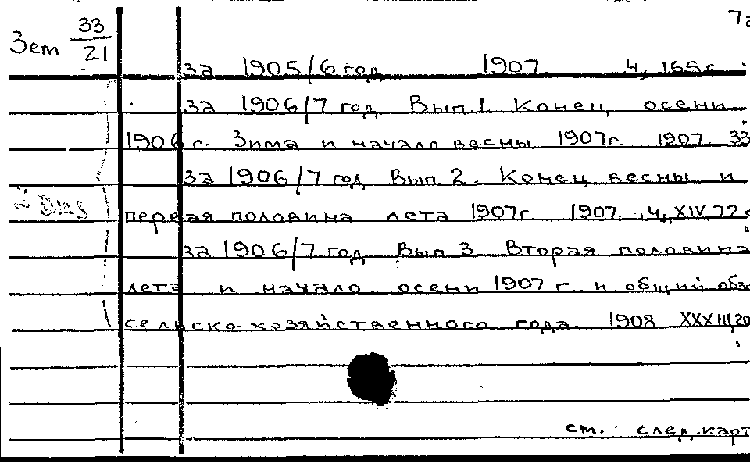 Зем 33/21
за 1905/6 год 1907. 4, 165с.
за 1906/7 год Вып.1. Конец осени
1906 г. Зима и начало весны 1907г. 1907. 33
за 1906/7 год Вып. 2. Конец весны и
первая половина лета 1907г. 1907. 4, XIV, 72с
за 1906/7 год Вып. 3. Вторая половина
лета и начало осени 1907 г. и общий обз
сельско-хозяйственного года. 1908 XXXIII, 20
см. след. карт